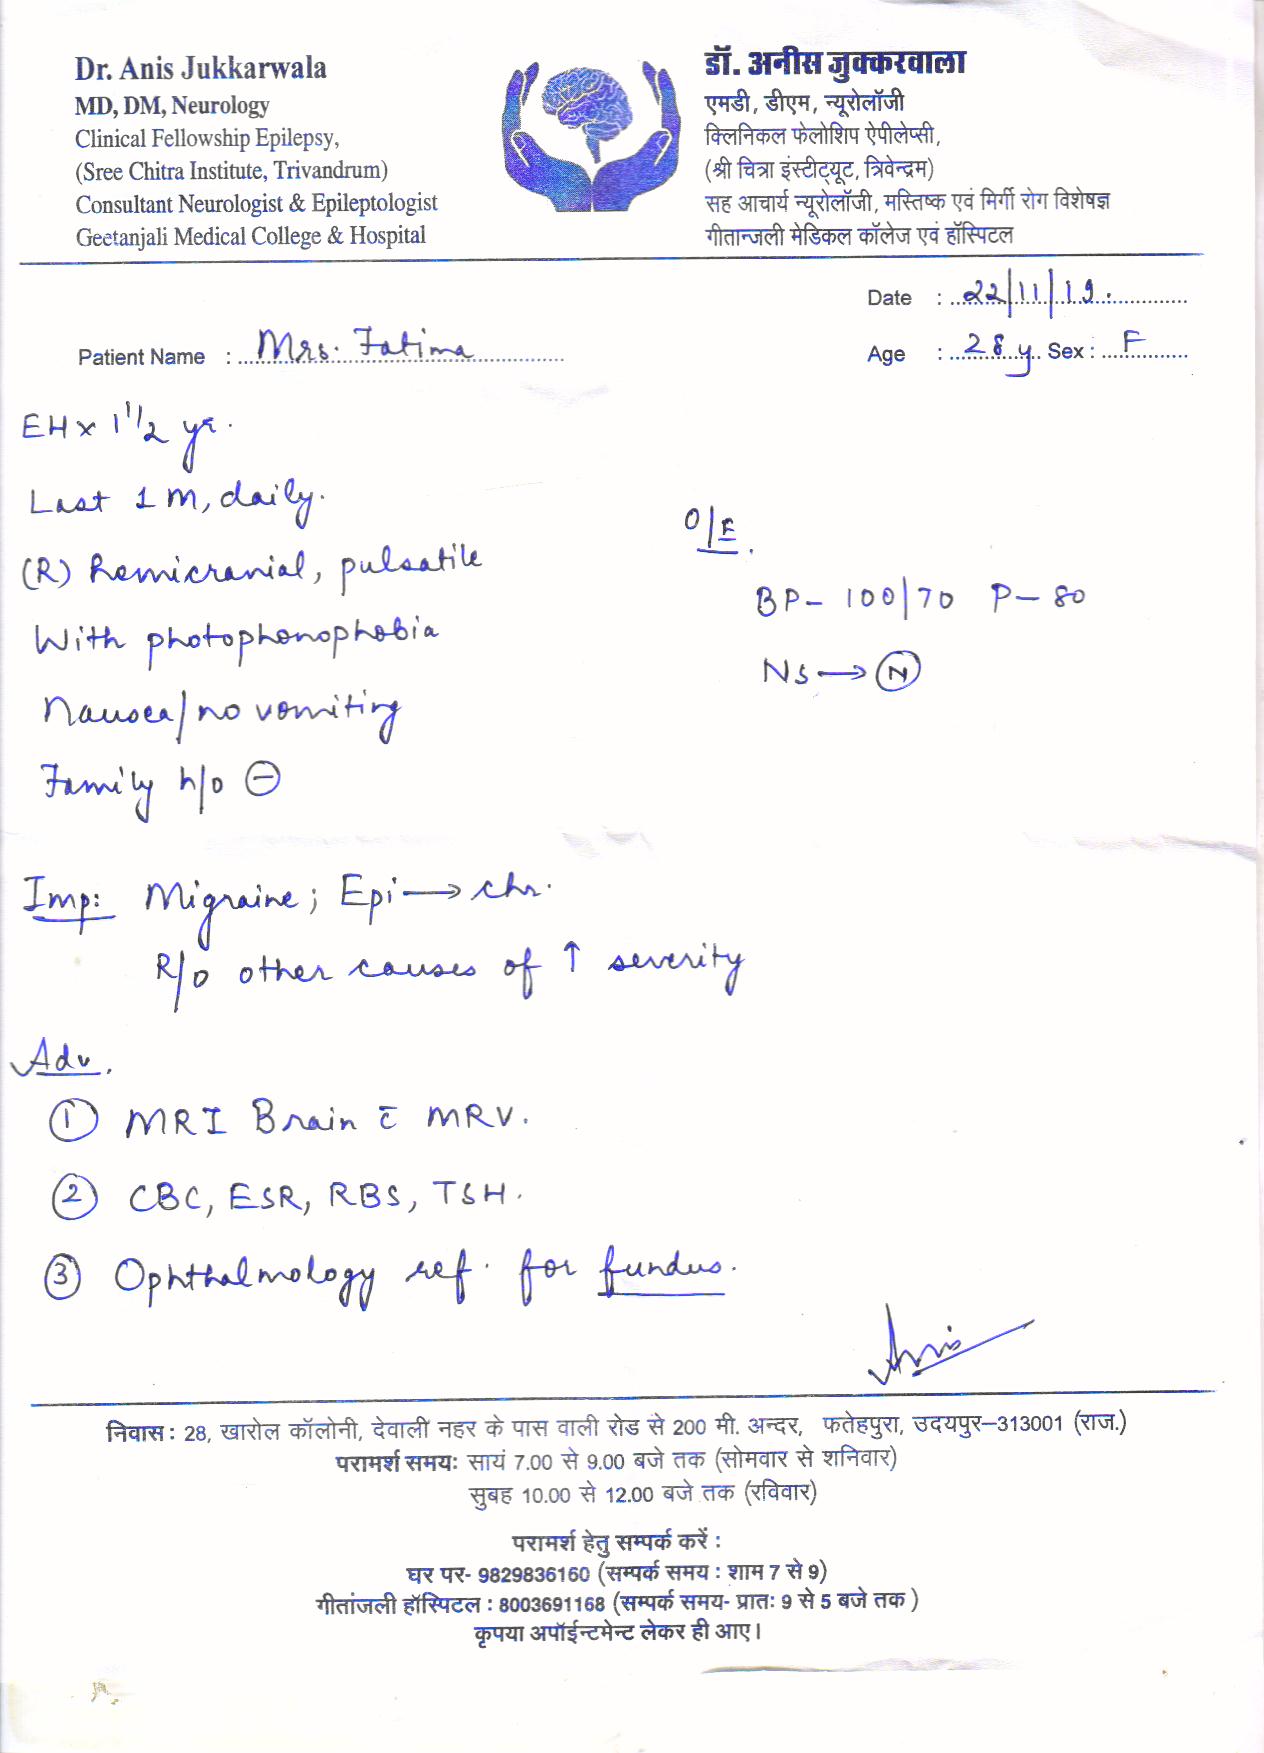 Dr. Anis Jukkarwala
MD, DM, Neurology
Clinical Fellowship Epilepsy,
(Sree Chitra Institute, Trivandrum)
Consultant Neurologist & Epileptologist
Geetanjali Medical College & Hospital
डॉ. अनीस जुक्करवाला
एमडी, डीएम, न्यूरोलॉजी
क्लिनिकल फेलोशिप ऐपीलेप्सी,
(श्री चित्रा इंस्टीट्यूट, त्रिवेन्द्रम)
सह आचार्य न्यूरोलॉजी, मस्तिष्क एवं मिर्गी रोग विशेषज्ञ
गीतान्जली मेडिकल कॉलेज एवं हॉस्पिटल
Date : 22/11/19.
Patient Name : Mrs. Fatima
Age : 28 y Sex : F
EH x 1 1/2 yr.
Last 1 M, daily.
(R) hemicranial, pulsatile
With photophonophobia
Nausea/no vomiting
Family h/o ⊖
O/E.
BP- 100/70 P- 80
NS → Ⓝ
Imp: Migraine; Epi → chr.
R/o other causes of ↑ severity
Adv.
① MRI Brain c̄ MRV.
② CBC, ESR, RBS, TSH.
③ Ophthalmology ref. for fundus.
Anis
निवास : 28, खारोल कॉलोनी, देवाली नहर के पास वाली रोड से 200 मी. अन्दर, फतेहपुरा, उदयपुर–313001 (राज.)
परामर्श समयः सायं 7.00 से 9.00 बजे तक (सोमवार से शनिवार)
सुबह 10.00 से 12.00 बजे तक (रविवार)
परामर्श हेतु सम्पर्क करें :
घर पर- 9829836160 (सम्पर्क समय : शाम 7 से 9)
गीतांजली हॉस्पिटल : 8003691168 (सम्पर्क समय- प्रातः 9 से 5 बजे तक )
कृपया अपॉईन्टमेन्ट लेकर ही आए।